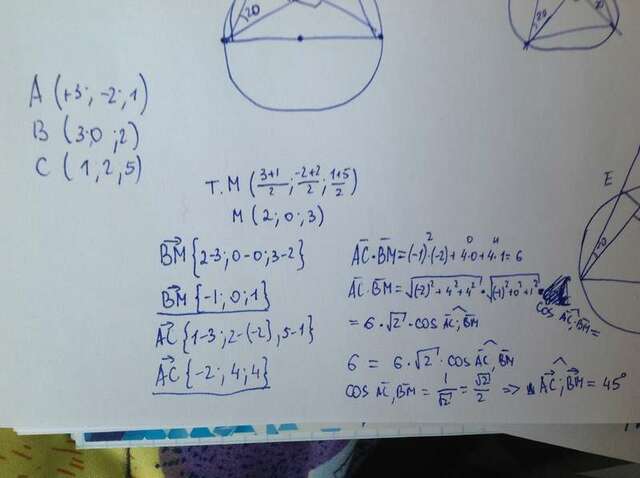 20
20
A (+3; -2; 1)
B (3;0 ;2)
C (1, 2, 5)
T. M (3+1/2 ; -2+2/2 ; 1+5/2)
M (2; 0; 3)
E
20
BM→ {2-3; 0-0; 3-2}
BM→ {-1; 0; 1}
AC→ {1-3; 2-(-2), 5-1}
AC→ {-2; 4; 4}
AC · BM = (-1)·(-2) + 4·0 + 4·1 = 6
2 0 4
AC · BM = √(-2)²+4²+4² · √(-1)²+0²+1² ·
cos AC; BM =
= 6 · √2 · cos AC; BM
6 = 6 · √2 · cos AC; BM
cos AC, BM = 1/√2 = √2/2 => AC→; BM→ = 45°